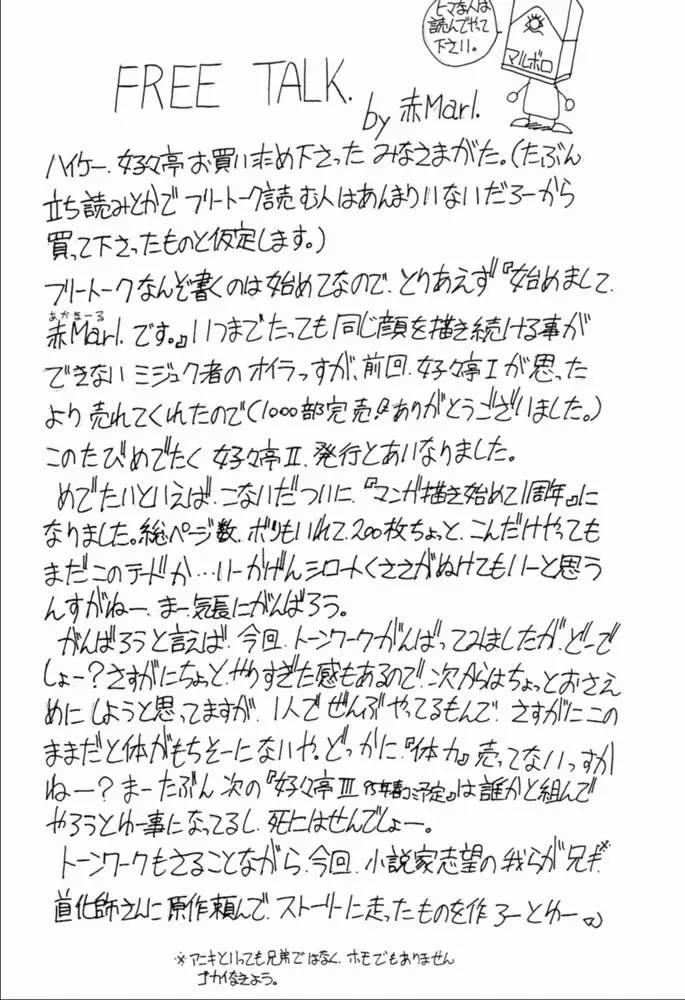 ヒマな人は
読んでやって
下さい。
マルボロ
FREE TALK.
by 赤Marl.
ハイケー、好々亭お買い求め下さったみなさまがた。(たぶん
立ち読みとかでフリートーク読む人はあんまりいないだろーから
買って下さったものと仮定します。)
フリートークなんぞ書くのは始めてなので、とりあえず『始めまして、
あかまーる
赤Marl.です。』いつまでたっても同じ顔を描き続ける事が
できないミジュク者のオイラっすが、前回、好々亭Iが思った
より売れてくれたので(1000部完売!!ありがとうございました。)
このたびめでたく好々亭II、発行とあいなりました。
めでたいといえば、こないだついに、『マンガ描き始めて1周年』に
なりました。総ページ数、ボツもいれて、200枚ちょっと、こんだけやっても
まだこのテードか…いーかげんシロートくささがぬけてもいーと思う
んすがねー、まー、気長にがんばろう。
がんばろうと言えば、今回、トーンワークがんばってみましたが、どーで
しょー?さすがにちょっと、やりすぎた感もあるので、次からはちょっとおさえ
めにしようと思ってますが、1人でぜんぶやってるもんで、さすがにこの
ままだと体がもちそーにないや。どっかに、『体力』売ってないっすか
ねー?まーたぶん次の『好々亭III 95年春予定』は誰かと組んで
やろうとゆー事になってるし、死にはせんでしょー。
トーンワークもさることながら、今回、小説家志望の我らが兄キ※
道化師さんに原作頼んで、ストーリーに走ったものを作ろーとゆー
※アニキといっても兄弟ではなく、ホモでもありません
ゴカイなきよう。